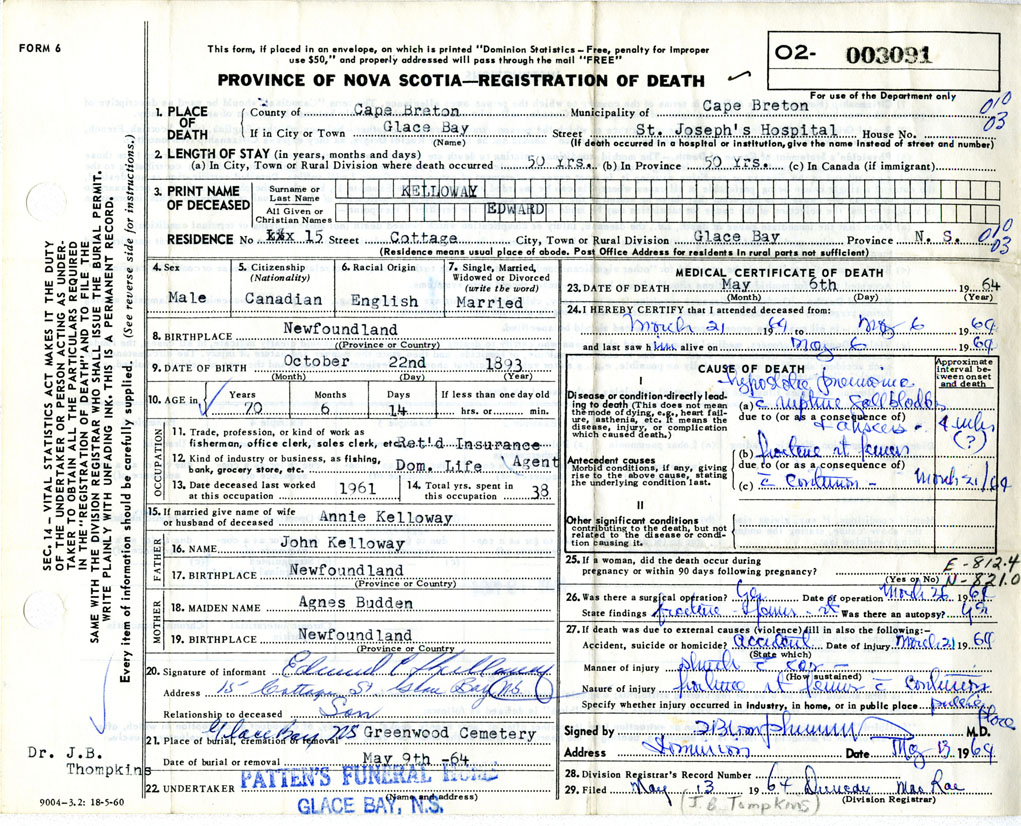 FORM 6
This form, if placed in an envelope, on which is printed "Dominion Statistics—Free, penalty for improper
use $50," and properly addressed will pass through the mail "FREE"
O2- 003091
For use of the Department only
PROVINCE OF NOVA SCOTIA—REGISTRATION OF DEATH
SEC. 14 – VITAL STATISTICS ACT MAKES IT THE DUTY
OF THE UNDERTAKER OR PERSON ACTING AS UNDER-
TAKER TO OBTAIN THE PARTICULARS REQUIRED
IN THE "REGISTRATION OF DEATH" AND TO FILE THE
SAME WITH THE DIVISION REGISTRAR WHO SHALL ISSUE THE BURIAL PERMIT.
WRITE PLAINLY WITH UNFADING INK. THIS IS A PERMANENT RECORD.
Every item of information should be carefully supplied. (See reverse side for instructions.)
1. PLACE OF DEATH
County of Cape Breton Municipality of Cape Breton 010
03
If in City or Town Glace Bay Street St. Joseph's Hospital House No.
(Name) (If death occurred in a hospital or institution, give the name instead of street and number)
2. LENGTH OF STAY (in years, months and days)
(a) In City, Town or Rural Division where death occurred 50 yrs. (b) In Province 50 yrs. (c) In Canada (if immigrant)
3. PRINT NAME OF DECEASED
Surname or Last Name KELLOWAY
All Given or Christian Names EDWARD
RESIDENCE No 15 Street Cottage City, Town or Rural Division Glace Bay Province N. S. 010
03
(Residence means usual place of abode. Post Office Address for residents in rural parts not sufficient)
4. Sex
Male
5. Citizenship
(Nationality)
Canadian
6. Racial Origin
English
7. Single, Married,
Widowed or Divorced
(write the word)
Married
8. BIRTHPLACE Newfoundland
(Province or Country)
9. DATE OF BIRTH October 22nd 1893
(Month) (Day) (Year)
10. AGE in
Years 70
Months 6
Days 14
If less than one day old
hrs. or min.
OCCUPATION
11. Trade, profession, or kind of work as
fisherman, office clerk, sales clerk, etc. Ret'd Insurance
Agent
12. Kind of industry or business, as fishing,
bank, grocery store, etc. Dom. Life
13. Date deceased last worked
at this occupation 1961
14. Total yrs. spent in
this occupation 38
15. If married give name of wife
or husband of deceased Annie Kelloway
FATHER
16. NAME John Kelloway
17. BIRTHPLACE Newfoundland
(Province or Country)
MOTHER
18. MAIDEN NAME Agnes Budden
19. BIRTHPLACE Newfoundland
(Province or Country)
20. Signature of informant
Address 15 Cottage St Glace Bay N.S.
Relationship to deceased Son
21. Place of burial, cremation or removal Glace Bay NS Greenwood Cemetery
Date of burial or removal May 9th -64
22. UNDERTAKER PATTEN'S FUNERAL HOME
(Name and address)
GLACE BAY, N.S.
Dr. J.B.
Thompkins
9004–3.2: 18-5-60
MEDICAL CERTIFICATE OF DEATH
23. DATE OF DEATH May 6th 1964
(Month) (Day) (Year)
24. I HEREBY CERTIFY that I attended deceased from:
March 21 1964 to May 6 1964
and last saw h alive on May 6 1964
CAUSE OF DEATH
Approximate
interval be-
tween onset
and death
I
Disease or condition directly lead-
ing to death (This does not mean
the mode of dying, e.g., heart fail-
ure, asthenia, etc. It means the
disease, injury, or complication
which caused death.)
hypostatic pneumonia
(a) c rupture gallbladder
due to (or as a consequence of)
+ abscess - 4 wks
(?)
Antecedent causes
Morbid conditions, if any, giving
rise to the above cause, stating
the underlying condition last.
(b) fracture rt femur
due to (or as a consequence of)
(c) c contusion - March 21/64
II
Other significant conditions
contributing to the death, but not
related to the disease or condi-
tion causing it.
25. If a woman, did the death occur during
pregnancy or within 90 days following pregnancy?
(Yes or No)
E-812.4
N-821.0
26. Was there a surgical operation? Yes Date of operation March 26 1964
State findings fracture femur rt Was there an autopsy? Yes
27. If death was due to external causes (violence) fill in also the following:—
Accident, suicide or homicide? Accident Date of injury March 21 1964
(State which)
Manner of injury struck c car -
(How sustained)
Nature of injury fracture rt femur c contusion
Specify whether injury occurred in Industry, in home, or in public place public
place
Signed by M.D.
Address Dominion Date May 13 1964
28. Division Registrar's Record Number
29. Filed May 13 1964 Duncan MacRae
(J. B. Tompkins) (Division Registrar)